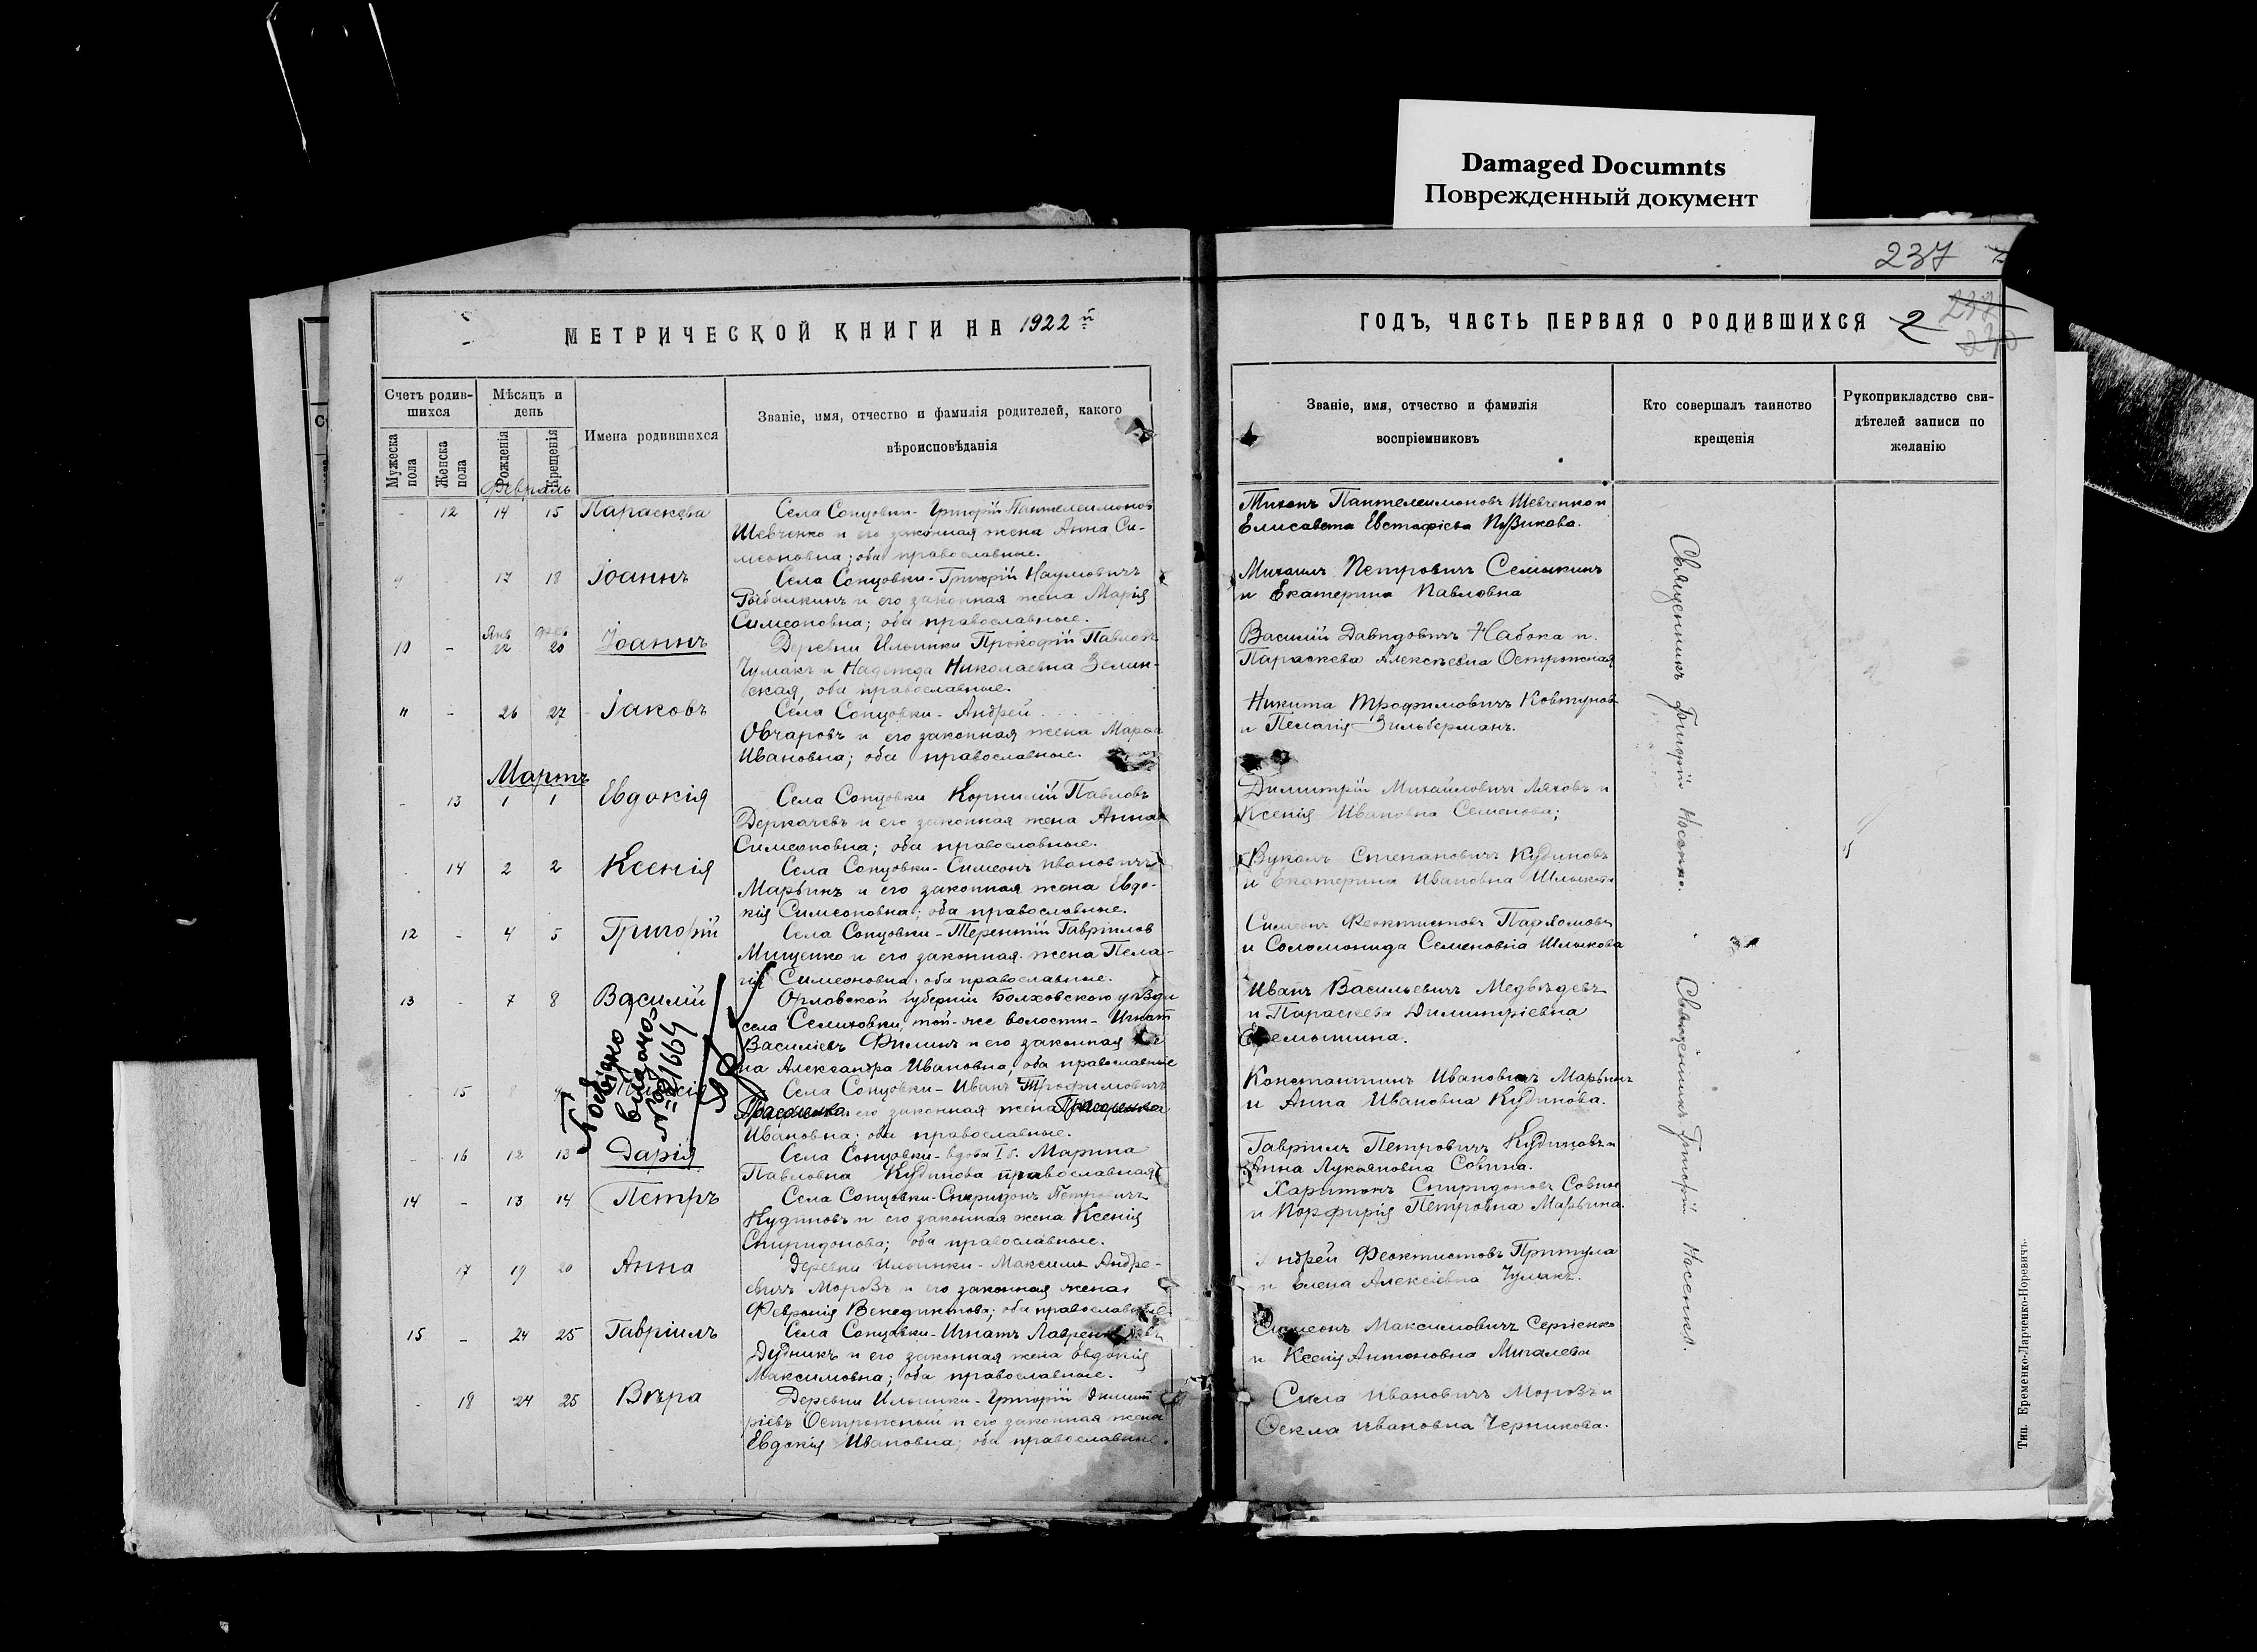 Damaged Documnts
Поврежденный документ
237
МЕТРИЧЕСКОЙ КНИГИ НА 1922 й
ГОДЪ, ЧАСТЬ ПЕРВАЯ О РОДИВШИХСЯ 2
Счетъ родив-
шихся
Мужеска пола
Женска пола
Мѣсяцъ и
день
Рожденія
Крещенія
Имена родившихся
Званіе, имя, отчество и фамилія родителей, какого
вѣроисповѣданія
Званіе, имя, отчество и фамилія
воспріемниковъ
Кто совершалъ таинство
крещенія
Рукоприкладство сви-
дѣтелей записи по
желанію
Февраль
- 12 14 15 Параскева
Села Сонцовки - Григорій Пантелеимоновъ
Шевченко и его законная жена Анна Си-
меоновна; оба православные.
Тихонъ Пантелеимоновъ Шевченко и
Елисавета Евстафіева Пузикова.
9 - 17 18 Іоаннъ
Села Сонцовки - Григорій Наумовичъ
Рыбалкинъ и его законная жена Марія
Симеоновна; оба православные.
Михаилъ Петровичъ Семыкинъ
и Екатерина Павловна
Янв Фев
10 - 22 20 Іоаннъ
Деревни Ильинки Прокофій Павлов
Чумакъ и Надежда Николаевна Зелин-
ская, оба православные.
Василій Давидовичъ Набока и
Параскева Алексѣевна Острожная
11 - 26 27 Іаковъ
Села Сонцовки - Андрей
Овчаровъ и его законная жена Марѳа
Ивановна; оба православные.
Никита Трофимовичъ Ковтуновъ
и Пелагія Зильберманъ.
Мартъ
- 13 1 1 Евдокія
Села Сонцовки Корнилій Павловъ
Деркачевъ и его законная жена Анна
Симеоновна; оба православные.
Димитрій Михайловичъ Ляховъ и
Ксенія Ивановна Семенова;
14 2 2 Ксенія
Села Сонцовки - Симеонъ Ивановичъ
Марьинъ и его законная жена Евдо-
кія Симеоновна; оба православные.
Вуколъ Степановичъ Кудиновъ
и Екатерина Ивановна Шлыкова
12 - 4 5 Григорій
Села Сонцовки - Терентій Гавріиловъ
Мищенко и его законная жена Пела-
гія Симеоновна; оба православные.
Симеонъ Феоктистовъ
и Соломонида Семеновна Шлыкова
13 - 7 8 Василій
Орловской губерніи Болховского уѣзда
села Селиховки, той-же волости - Игнат
Василіевъ Филинъ и его законная же
на Александра Ивановна, оба православные
Иванъ Васильевичъ Медвѣдевъ
и Параскева Димитріевна
Еремышина.
Посвідко
видано
№ 1664
15
Села Сонцовки - Иванъ Трофимовичъ
его законная жена
Ивановна; оба православные.
Константинъ Ивановичъ Марьинъ
и Анна Ивановна Кудинова.
16 12 13 Дарія
Села Сонцовки - вдова I б. Марина
Павловна Кудинова православная
Гавріилъ Петровичъ Кудиновъ и
Анна Лукояновна Совина.
14 - 13 14 Петръ
Села Сонцовки - Спиридонъ Петровичъ
Кудиновъ и его законная жена Ксенія
Спиридонова; оба православные.
Харитонъ Спиридоновъ Совин
и Порфирія Петровна Марьина.
17 19 20 Анна
Деревни Ильинки - Максимъ Андре-
евичъ Морозъ и его законная жена
Февронія Венедиктова; оба православные
Андрей Феоктистовъ Притула
и Елена Алексіевна Чумакъ.
15 - 24 25 Гавріилъ
Села Сонцовки - Игнатъ Лаврентіевъ
Дудникъ и его законная жена Евдокія
Максимовна; оба православные.
Симеонъ Максимовичъ Сергіенко
и Ксенія Антоновна Мигалева
- 18 24 25 Вѣра
Деревни Ильинки - Григорій Димит
ріевъ Остроженый и его законная жена
Евдокія Ивановна; оба православные.
Сила Ивановичъ Морозъ и
Ѳекла Ивановна Черникова.
Священникъ Григорій Носенко.
Священникъ Григорій Носенко.
Тип. Еременко-Ларченко-Норевичъ.